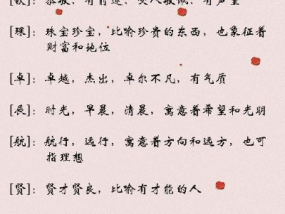 [珠]：珠宝珍宝，比喻珍贵的东西，也象征着
财富和地位
[卓]：卓越，杰出，卓尔不凡，有气质
[辰]：时光，早晨，清晨，寓意着希望和光明
[航]：航行，远行，寓意着方向和远方，也可
指理想
[贤]：贤才贤良，比喻有才能的人